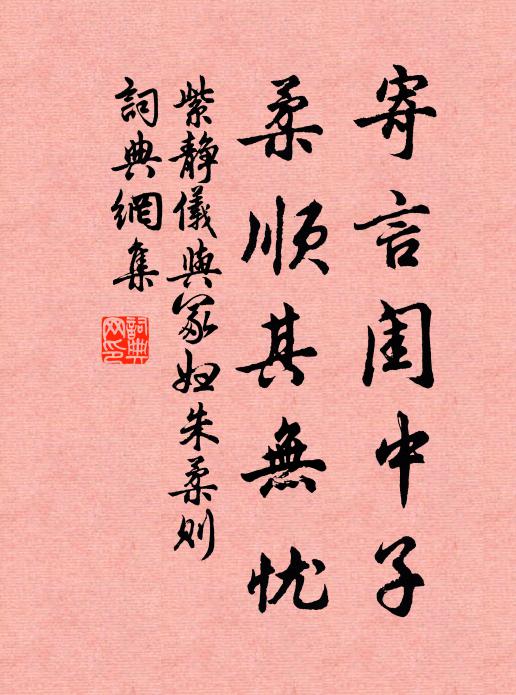 寄言闺中子
柔順其無忧
紫静儀與冢妇朱柔则
詞典網集
詞典网印